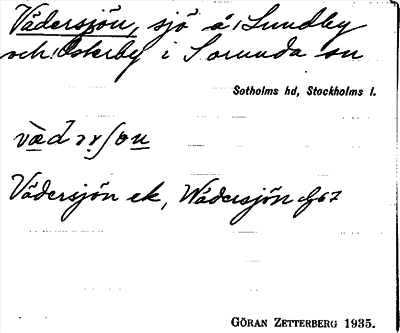 Vädersjön, sjö å Lundby
och Österby i Sorunda sn
Sotholms hd, Stockholms l.
Vädersjön ek, Wädersjön
GÖRAN ZETTERBERG 1935.